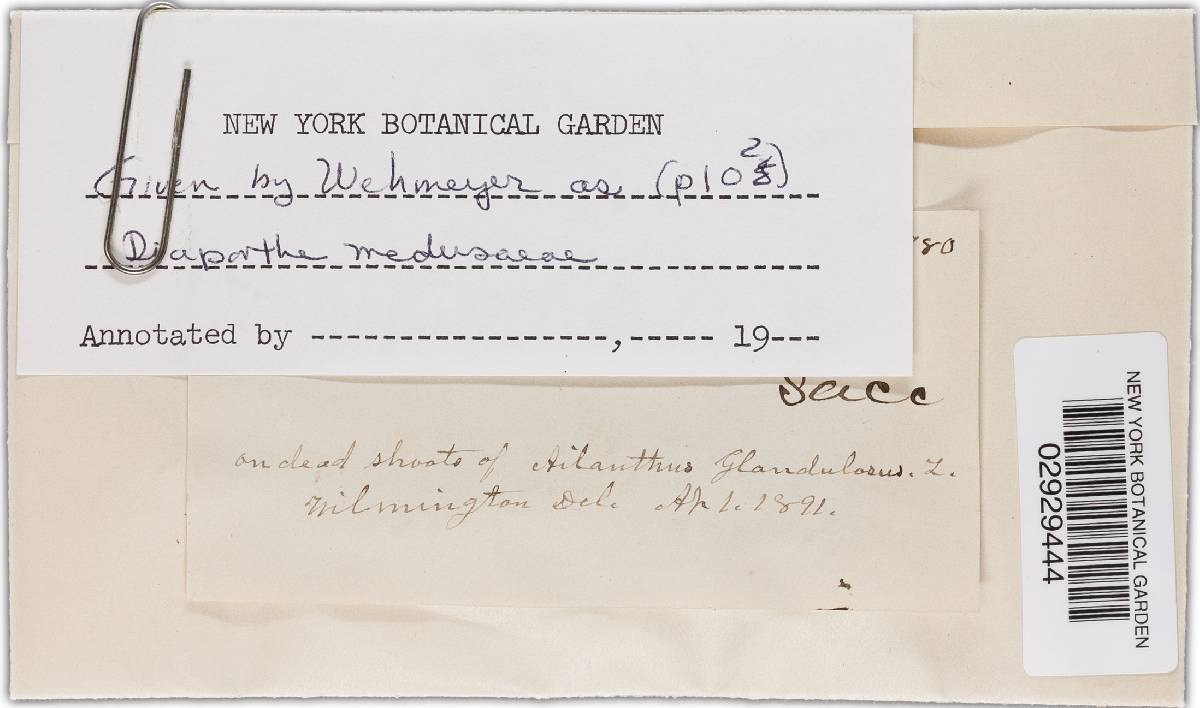 NEW YORK BOTANICAL GARDEN
Given by Wehmeyer as (p10
Diaporthe medusaeae
Annotated by -----------------,----- 19---
780
Sacc
on dead shoots of Ailanthus Glandulosus. L.
Wilmington Del. Ap 1. 1891.
NEW YORK BOTANICAL GARDEN
02929444